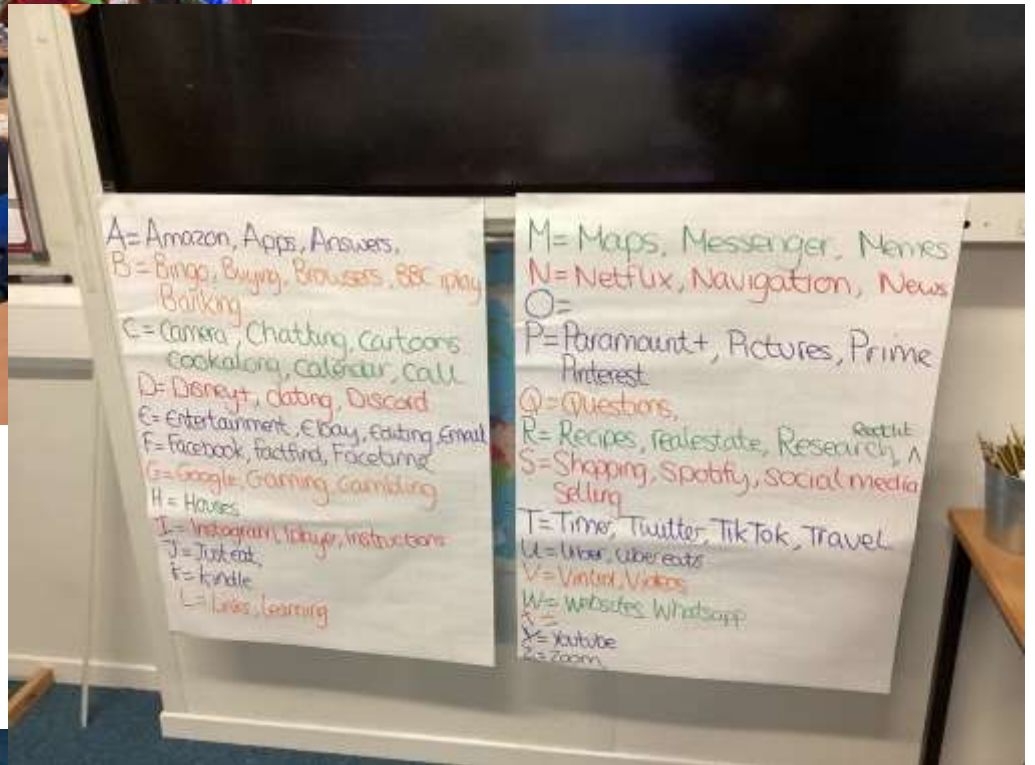 A= Amazon, Apps, Answers,
B= Bingo, Buying, Browsers, BBC iplay
Banking
C= Camera, Chatting, Cartoons
Cookalong, calendar, call
D= Disney+, dating, Discord
E= Entertainment, Ebay, Editing, Email
F= Facebook, factfind, Facetime
G= Google, Gaming, Gambling
H= Houses
I= Instagram, Iplayer, Instructions
J= Just eat,
K= kindle
L= Links, Learning
M= Maps, Messenger, Memes
N= Netflix, Navigation, News
O=
P= Paramount+, Pictures, Prime
Pinterest
Q= Questions,
Reddit
R= Recipes, realestate, Research, ^
S= Shopping, Spotify, social media
Selling
T= Time, Twitter, TikTok, Travel
U= Uber, ubereats
V= Vinted, Videos
W= Websites, Whatsapp
X=
Y= Youtube
Z= Zoom,